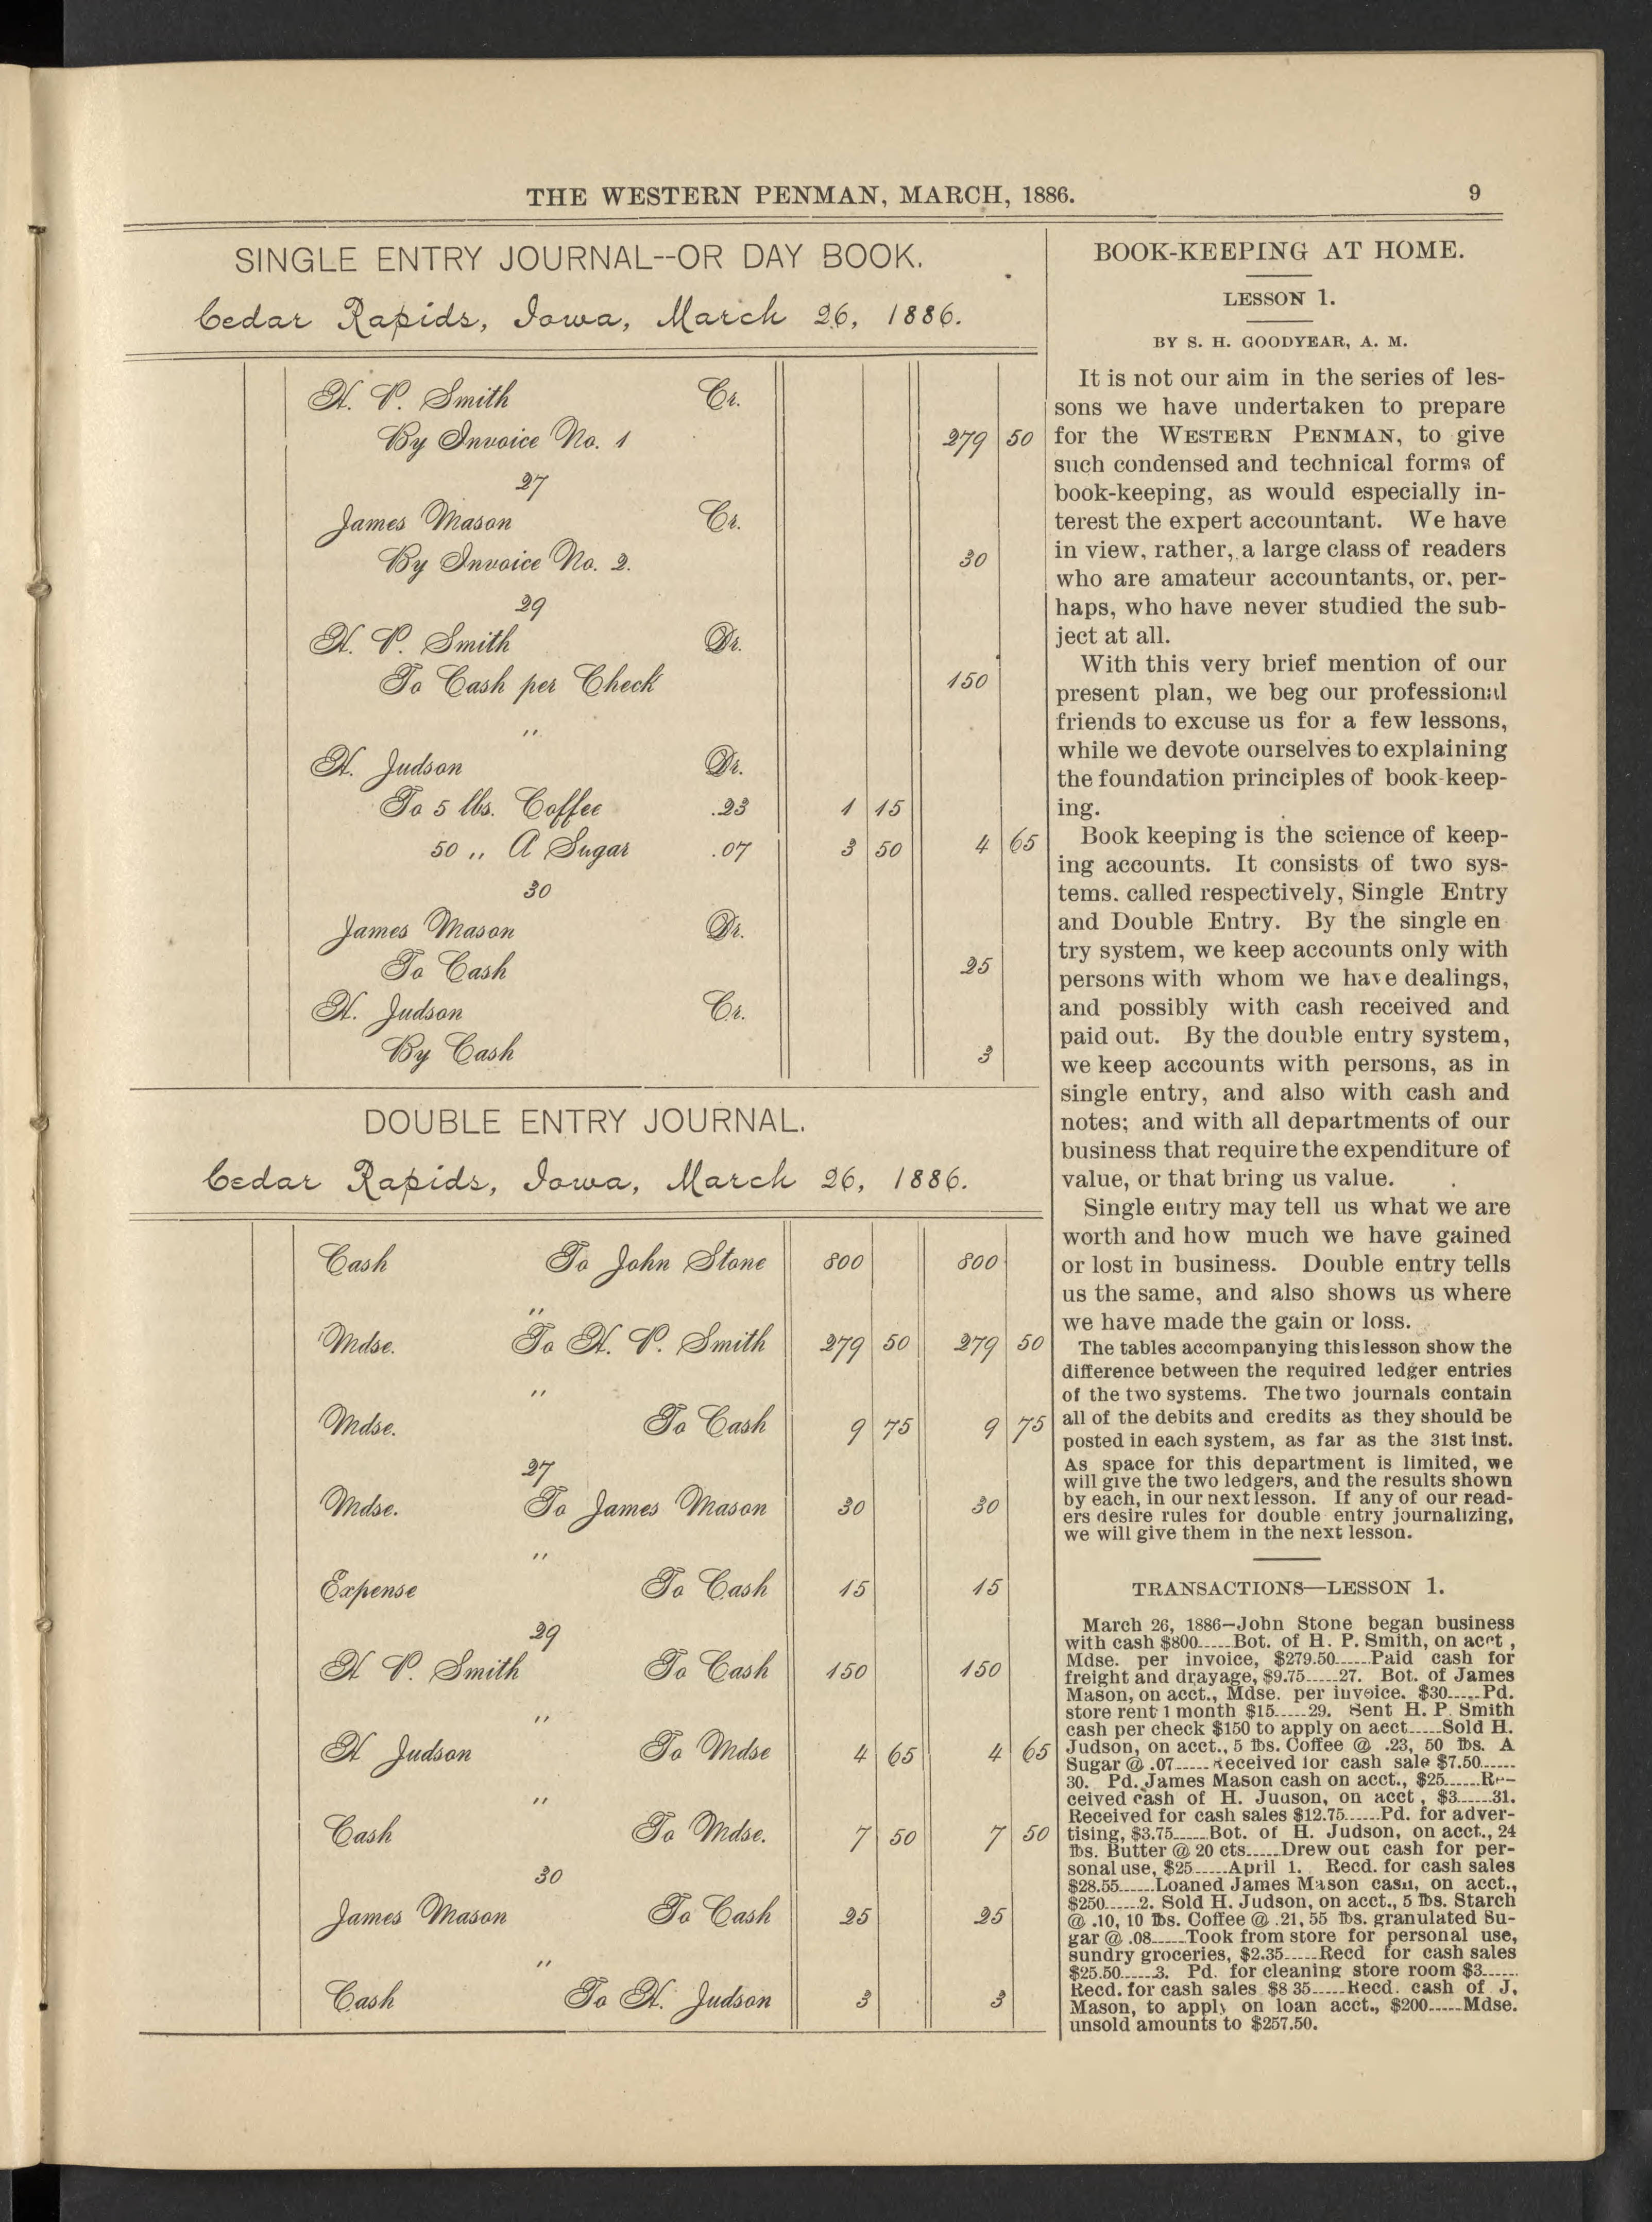 THE WESTERN PENMAN, MARCH, 1886. 9
SINGLE ENTRY JOURNAL--OR DAY BOOK.
Cedar Rapids, Iowa, March 26, 1886.
H. P. Smith Cr.
By Invoice No. 1 279 50
27
James Mason Cr.
By Invoice No. 2. 30
29
H. P. Smith Dr.
To Cash per Check 150
"
H. Judson Dr.
To 5 lbs. Coffee .23 1 15
50 ,, A Sugar .07 3 50 4 65
30
James Mason Dr.
To Cash 25
H. Judson Cr.
By Cash 3
DOUBLE ENTRY JOURNAL.
Cedar Rapids, Iowa, March 26, 1886.
Cash To John Stone 800 800
"
Mdse. To H. P. Smith 279 50 279 50
"
Mdse. To Cash 9 75 9 75
27
Mdse. To James Mason 30 30
"
Expense To Cash 15 15
29
H P. Smith To Cash 150 150
"
H Judson To Mdse 4 65 4 65
"
Cash To Mdse. 7 50 7 50
30
James Mason To Cash 25 25
"
Cash To H. Judson 3 3
BOOK-KEEPING AT HOME.
LESSON 1.
BY S. H. GOODYEAR, A. M.
It is not our aim in the series of les-
sons we have undertaken to prepare
for the WESTERN PENMAN, to give
such condensed and technical forms of
book-keeping, as would especially in-
terest the expert accountant. We have
in view, rather, a large class of readers
who are amateur accountants, or, per-
haps, who have never studied the sub-
ject at all.
With this very brief mention of our
present plan, we beg our professional
friends to excuse us for a few lessons,
while we devote ourselves to explaining
the foundation principles of book-keep-
ing.
Book keeping is the science of keep-
ing accounts. It consists of two sys-
tems. called respectively, Single Entry
and Double Entry. By the single en
try system, we keep accounts only with
persons with whom we have dealings,
and possibly with cash received and
paid out. By the double entry system,
we keep accounts with persons, as in
single entry, and also with cash and
notes; and with all departments of our
business that require the expenditure of
value, or that bring us value.
Single entry may tell us what we are
worth and how much we have gained
or lost in business. Double entry tells
us the same, and also shows us where
we have made the gain or loss.
The tables accompanying this lesson show the
difference between the required ledger entries
of the two systems. The two journals contain
all of the debits and credits as they should be
posted in each system, as far as the 31st inst.
As space for this department is limited, we
will give the two ledgers, and the results shown
by each, in our next lesson. If any of our read-
ers desire rules for double entry journalizing,
we will give them in the next lesson.
TRANSACTIONS—LESSON 1.
March 26, 1886—John Stone began business
with cash $800.....Bot. of H. P. Smith, on acct ,
Mdse. per invoice, $279.50......Paid cash for
freight and drayage, $9.75.....27. Bot. of James
Mason, on acct., Mdse. per invoice. $30.....Pd.
store rent 1 month $15.....29. Sent H. P. Smith
cash per check $150 to apply on acct.....Sold H.
Judson, on acct., 5 lbs. Coffee @ .23, 50 lbs. A
Sugar @ .07.....Received for cash sale $7.50......
30. Pd. James Mason cash on acct., $25......Re-
ceived cash of H. Judson, on acct , $3......31.
Received for cash sales $12.75......Pd. for adver-
tising, $3.75......Bot. of H. Judson, on acct., 24
lbs. Butter @ 20 cts.....Drew out cash for per-
sonal use, $25.....April 1. Recd. for cash sales
$28.55......Loaned James Mason cash, on acct.,
$250......2. Sold H. Judson, on acct., 5 lbs. Starch
@ .10, 10 lbs. Coffee @ .21, 55 lbs. granulated Su-
gar @ .08.....Took from store for personal use,
sundry groceries, $2.35.....Recd for cash sales
$25.50......3. Pd. for cleaning store room $3......
Recd. for cash sales $8 35.....Recd. cash of J.
Mason, to apply on loan acct., $200.....Mdse.
unsold amounts to $257.50.